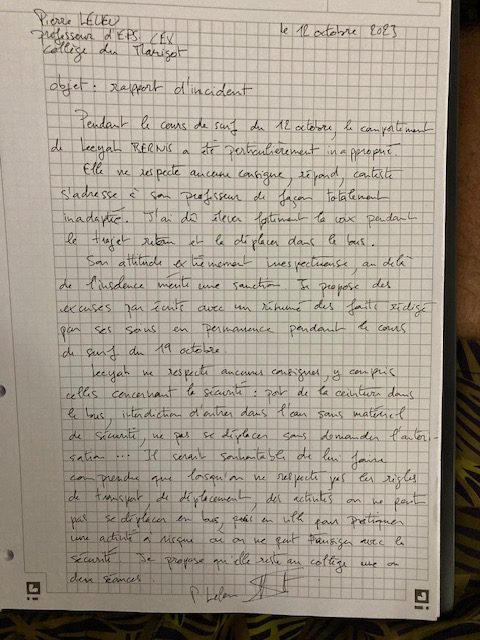 Pierre LELEU
professeur d'EPS, CEX
Collège du Marigot
le 12 octobre 2023
objet : rapport d'incident
Pendant le cours de surf du 12 octobre, le comportement
de Leeyah BERNIS a été particulièrement inapproprié.
Elle ne respecte aucune consigne, répond, conteste
s'adresse à son professeur de façon totalement
inadaptée. J'ai dû élever fortement la voix pendant
le trajet retour et la déplacer dans le bus.
Son attitude extrêmement irrespectueuse, au delà
de l'insolence mérite une sanction. Je propose des
excuses par écrits avec un résumé des faits rédigé
par ses soins en permanence pendant le cours
de surf du 19 octobre.
Leeyah ne respecte aucunes consignes, y compris
celles concernant la sécurité : port de la ceinture dans
le bus, interdiction d'entrer dans l'eau sans matériel
de sécurité, ne pas se déplacer sans demander l'autori-
sation ... Il serait souhaitable de lui faire
comprendre que lorsqu'on ne respecte pas les règles
de transport de déplacement, des activités on ne peut
pas se déplacer en bus, en ville pour pratiquer
une activité à risque où on ne peut transiger avec la
sécurité. Je propose qu'elle reste au collège une ou
deux séances.
P. Leleu